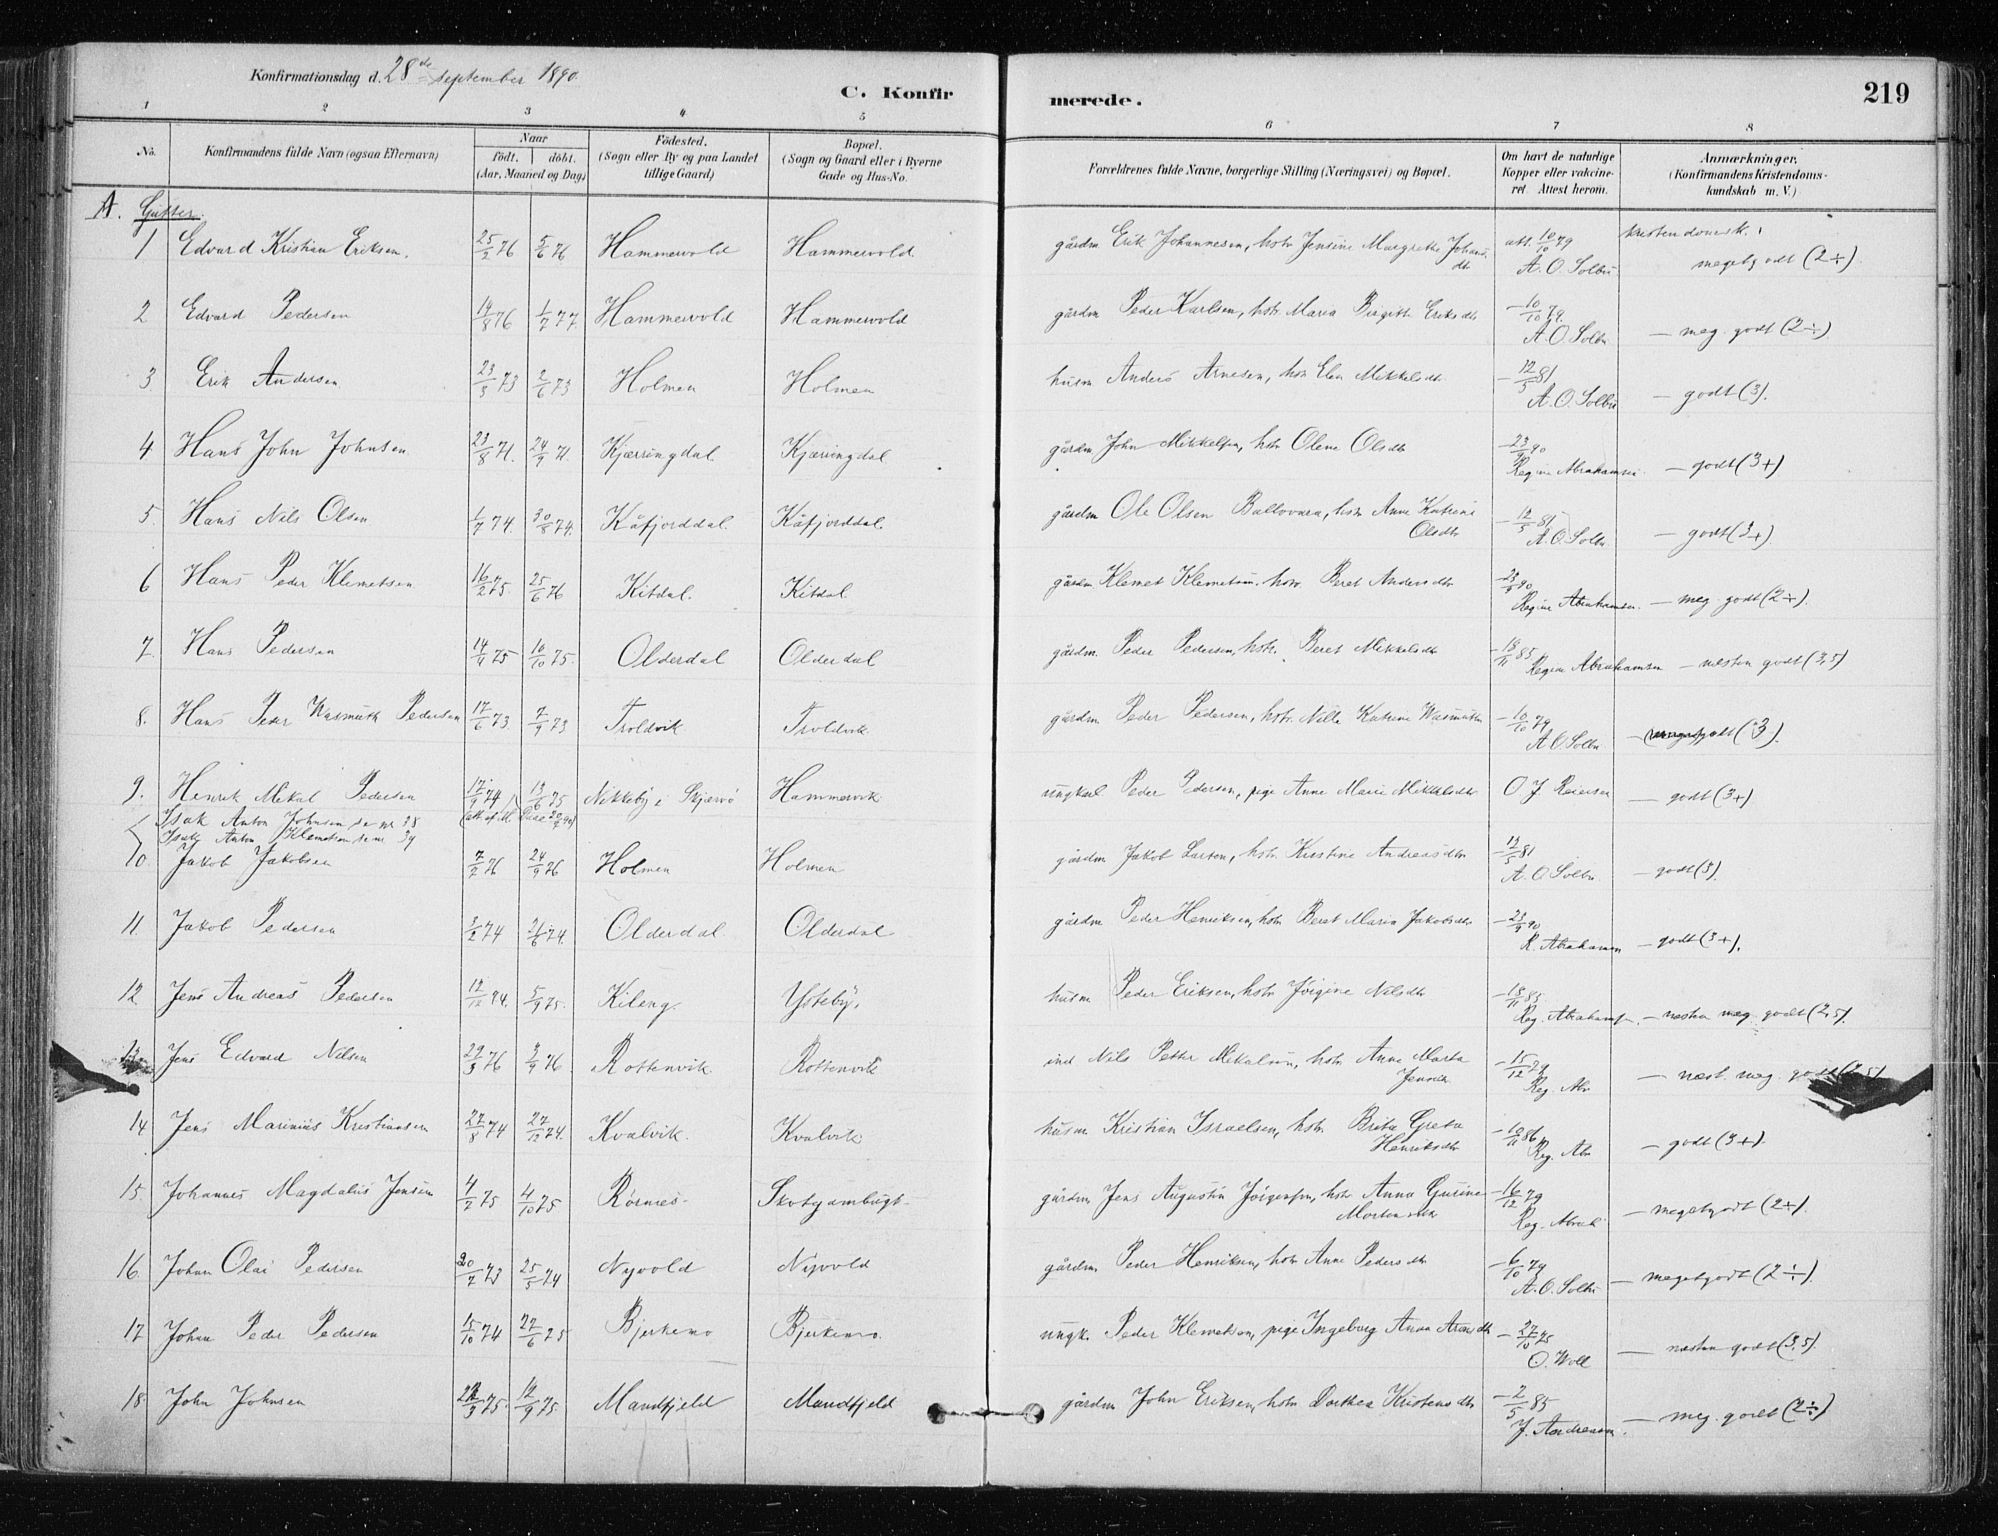 Konfirmationsdag d. 28de september 1890.
C. Konfirmerede.
219
1 2 3 4 5 6 7 8
No. Konfirmandens fulde Navn (ogsaa Efternavn) Naar født. døbt. (Aar, Maaned og Dag) Fødested. (Sogn eller By og paa Landet tillige Gaard) Bopæl. (Sogn og Gaard eller i Byerne Gade og Hus-No. Forældrenes fulde Navne, borgerlige Stilling (Næringsvei) og Bopæl. Om havt de naturlige Kopper eller vakcineret. Attest herom. Anmærkninger. (Konfirmandens Kristendomskundskab m. V.)
A. Gutter.
1 Edvard Kristian Eriksen. 25/2 76 5/6 76 Hammervold Hammervold gårdm Erik Johannesen, hstr Jensine Margrethe Johansdtr att. 10/10 79 A. O. Solbu kristendomsk. megetgodt (2÷)
2 Edvard Pedersen 14/8 76 1/7 77 Hammervold Hammervold gårdm Peder Karlsen, hstr Maria Birgitte Eriksdtr — 10/10 79. A. O. Solbu — meg. godt (2÷)
3. Erik Andersen 23/3 73 2/6 73 Holmen Holmen husm Anders Arnesen, hstr Elen Mikkelsdtr — 12/5 81 A. O. Solbu — godt (3).
4 Hans John Johnsen 23/8 71. 24/9 71. Kjærringdal Kjærringdal gårdm John Mikkelsen, hstr Olene Olsdtr — 23/9 90 Regine Abrahamsen — godt (3+)
5. Hans Nils Olsen 1/7 74. 30/8 74. Kåfjorddal Kåfjorddal. gårdm Ole Olsen Ballovara, hstr Anne Katrine Olsdtr — 12/5 81 A. O. Solbu — godt (3+)
6 Hans Peder Klemetsen 16/2 75. 25/6 76 Kitdal. Kitdal gårdm Klemet Klemetsen. hstr Beret Andersdtr — 23/9 90 Regine Abrahamsen. — meg. godt (2÷).
7. Hans Pedersen 14/4 75 10/10 75. Olderdal Olderdal gårdm. Peder Pedersen, hstr. Beret Mikkelsdtr — 18/11 85 Regine Abrahamsen — næsten godt (3,5)
8. Hans Peder Wasmuth Pedersen 17/6 73 7/9 73 Troldvik Troldvik gårdm Peder Pedersen, hstr. Nille Katrine Wasmuth — 10/10 79 A O Solbu — godt (3).
9. Henrik Mikal Pedersen 17/9 74 13/6 75 Nikkeby i Skjærvø Hammervik ungkarl Peder Pedersen, pige Anne Marie Mikkelsdtr O J Reiersen — godt (3+)
Isak Anton Johnsen, se nr 38
Isak Anton Klemetsen se nr 39
10. Jakob Jakobsen 7/2 76 24/9 76 Holmen Holmen gårdm Jakob Larsen, hstr Kristine Andreasdtr — 12/5 81 A. O. Solbu. — godt (3).
11. Jakob Pedersen 3/2 74 21/6 74. Olderdal Olderdal gårdm Peder Henriksen, hstr Beret Maria Jakobsdtr — 23/9 90 R. Abrahamsen — godt (3+).
12. Jens Andreas Pedersen 12/12 74. 5/9 75. Kileng. Ysteby. husm Peder Eriksen, hstr Jørgine Nilsdtr — 18/11 85 Reg. Abrahamsen. — næsten meg. godt (2,5).
13. Jens Edvard Nilsen 29/3 76 3/9 76. Rottenvik Rottenvik ind Nils Petter Mikalsen, hstr Anne Marta Jensdtr — 15/12 79 Reg. Abr — næst. meg. godt (2,5)
14 Jens Marinius Kristiansen 27/8 74 27/12 74. Kvalvik. Kvalvik husm Kristian Israelsen, hstr Brita Greta Henriksdtr — 10/11 86 Reg. Abr — godt (3+).
15. Johannes Magdalus Jensen 4/2 75 4/10 75 Rørnes Skotgambugt gårdm Jens Augustin Jørgensen, hstr Anna Gurine Mortensdtr — 16/12 79 Reg. Abrah — megetgodt (2+).
16. Johan Olai Pedersen 20/7 73 25/5 74 Nyvold Nyvold gårdm Peder Henriksen, hstr Anne Pedersdtr — 6/10 79 A. O. Solbu — megetgodt (2÷).
17 Johan Peder Pedersen 15/10 74 27/6 75 Bjerkemo Bjerkemo. ungk. Peder Klemetsen, pige Ingeborg Anna Aronsdtr — 27/10 75 O. Woll — næsten godt (3,5).
18. John Johnsen 22/3 75. 12/9 75. Mandfjeld Mandfjeld gårdm John Eriksen, hstr Dorthea Kristensdtr — 2/5 85 J. Andreassen. — meg. godt (2÷)